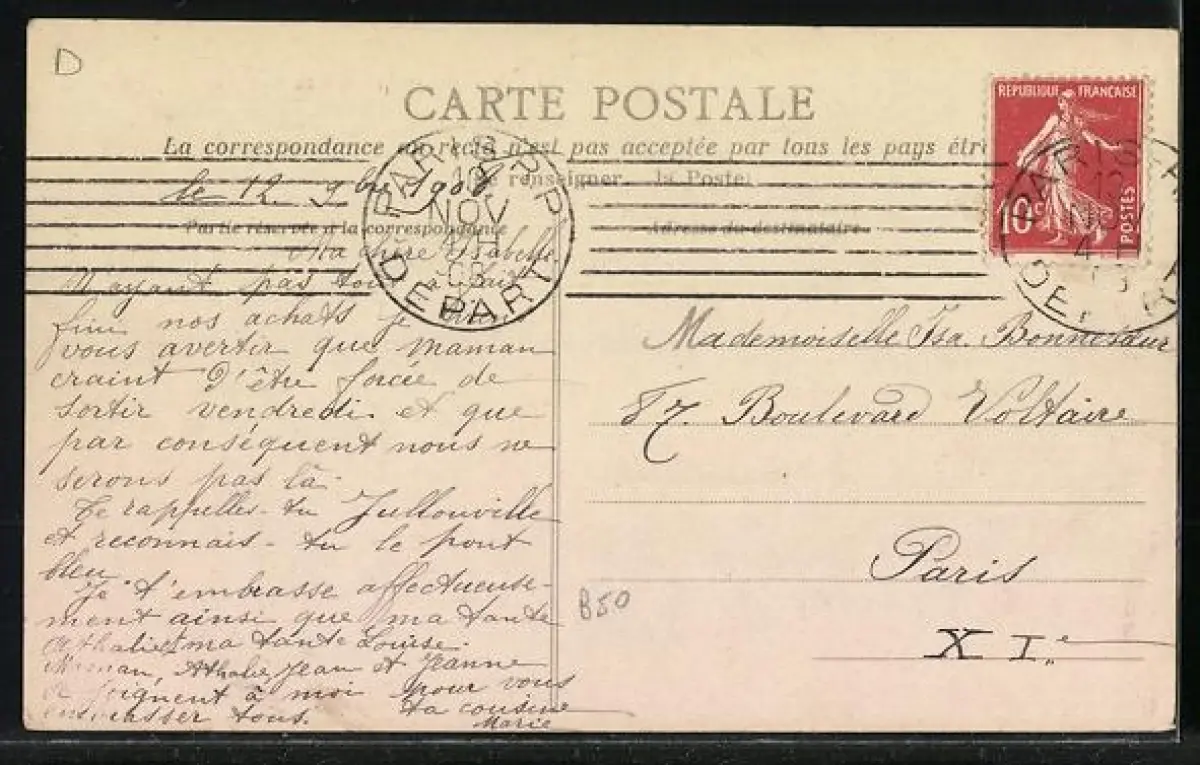 D
CARTE POSTALE
La correspondance au recto n'est pas acceptée par tous les pays
renseigner à la Poste
REPUBLIQUE FRANÇAISE
10c
POSTES
PARIS
NOV
DEPART
le 12 9bre 1908
Partie réservée à la correspondance
Adresse du destinataire
Ma chère Isabelle
N'ayant pas tout à fait
fini nos achats je
vous avertir que maman
craint d'être forcée de
sortir vendredi et que
par conséquent nous ne
serons pas là.
Te rappelles-tu Jullouville
et reconnais-tu le pont
bleu.
Je t'embrasse affectueuse-
ment ainsi que ma tante
Athalie et ma tante Louise.
Maman, Athalie, Jean et Jeanne
se joignent à moi pour vous
embrasser tous. ta cousine
Marie
Mademoiselle Isa. Bonnesœur
87. Boulevard Voltaire
Paris
XIe
B50